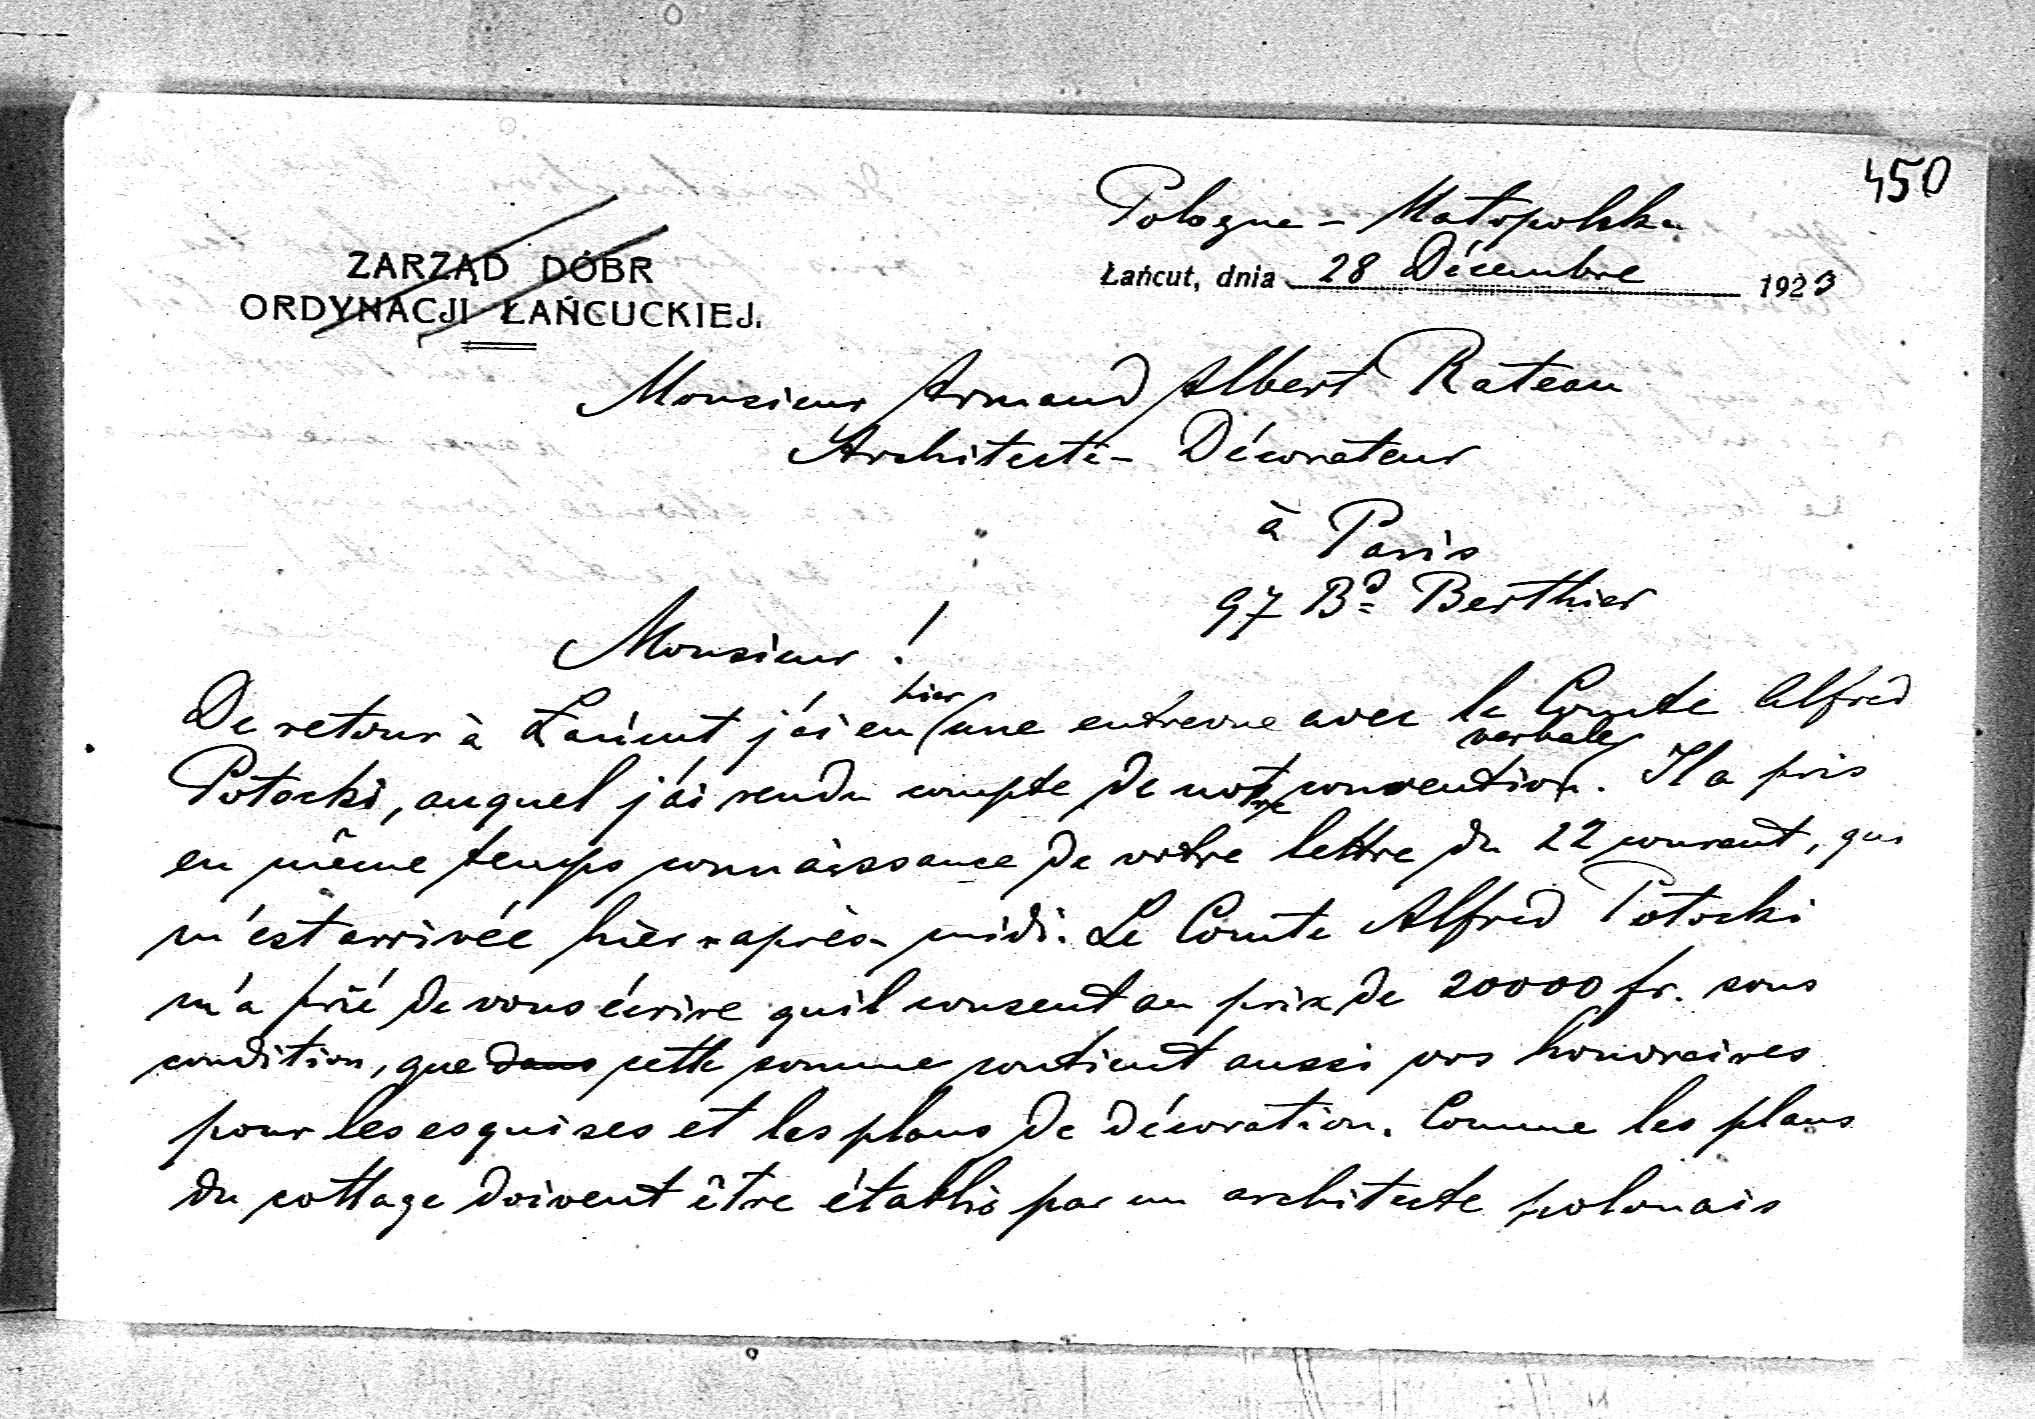 450
Pologne - Małopolska
ZARZĄD DÓBR
ORDYNACJI ŁAŃCUCKIEJ.
Łańcut, dnia 28 Décembre 1923
Monsieur Armand Albert Rateau
Architecte - Décorateur
à Paris
97 Bd Berthier
Monsieur !
De retour à Łańcut j'ai eu hier une entrevue avec le Comte Alfred
Potocki, auquel j'ai rendu compte de notre convention verbale. Il a pris
en même temps connaissance de votre lettre du 22 courant, qui
m'est arrivée hier après-midi. Le Comte Alfred Potocki
m'a prié de vous écrire qu'il consent au prix de 20000 fr. sous
condition, que dans cette somme contient aussi vos honoraires
pour les esquises et les plans de décoration. Comme les plans
du cottage doivent être établis par un architecte polonais